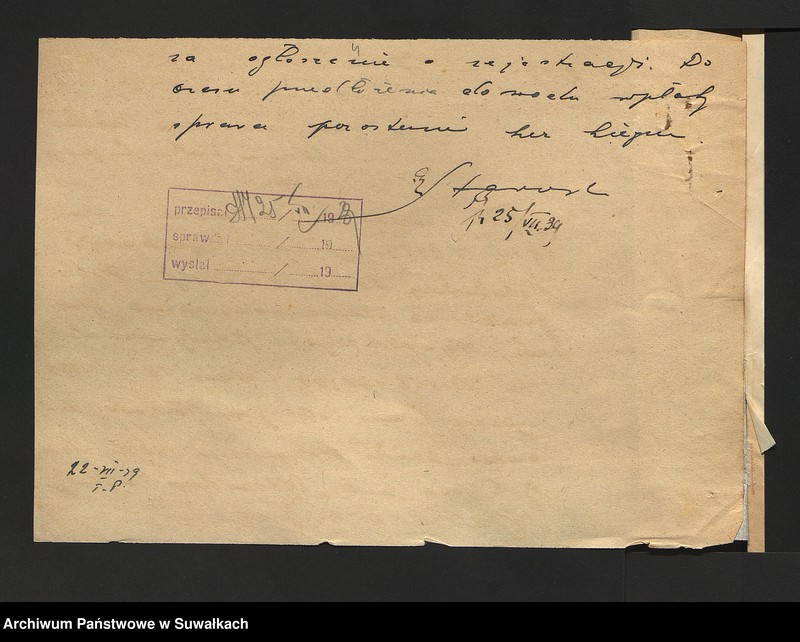 za ogłoszenie o rejestracji. Do
czasu przedłożenia dowodu wpłaty
sprawa pozostanie bez biegu.
Starosta
25/VII.39
przepisał 25/VII 1939
sprawdził / 19
wysłał / 19
22-VII-39
Archiwum Państwowe w Suwałkach